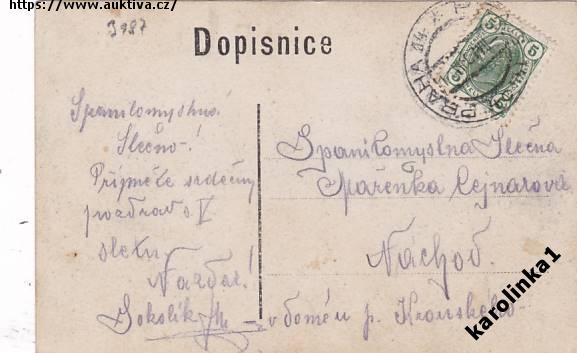 https://www.auktiva.cz/
3987
Dopisnice
PRAHA
5 5
Spanilomyslná
Slečno!
Přijměte srdečný
pozdrav s V
sletu
Nazdar!
Sokolík
Spanilomyslna Slečna
Mařenka Cejnarova
Náchod.
v doměu p.
karolinka1